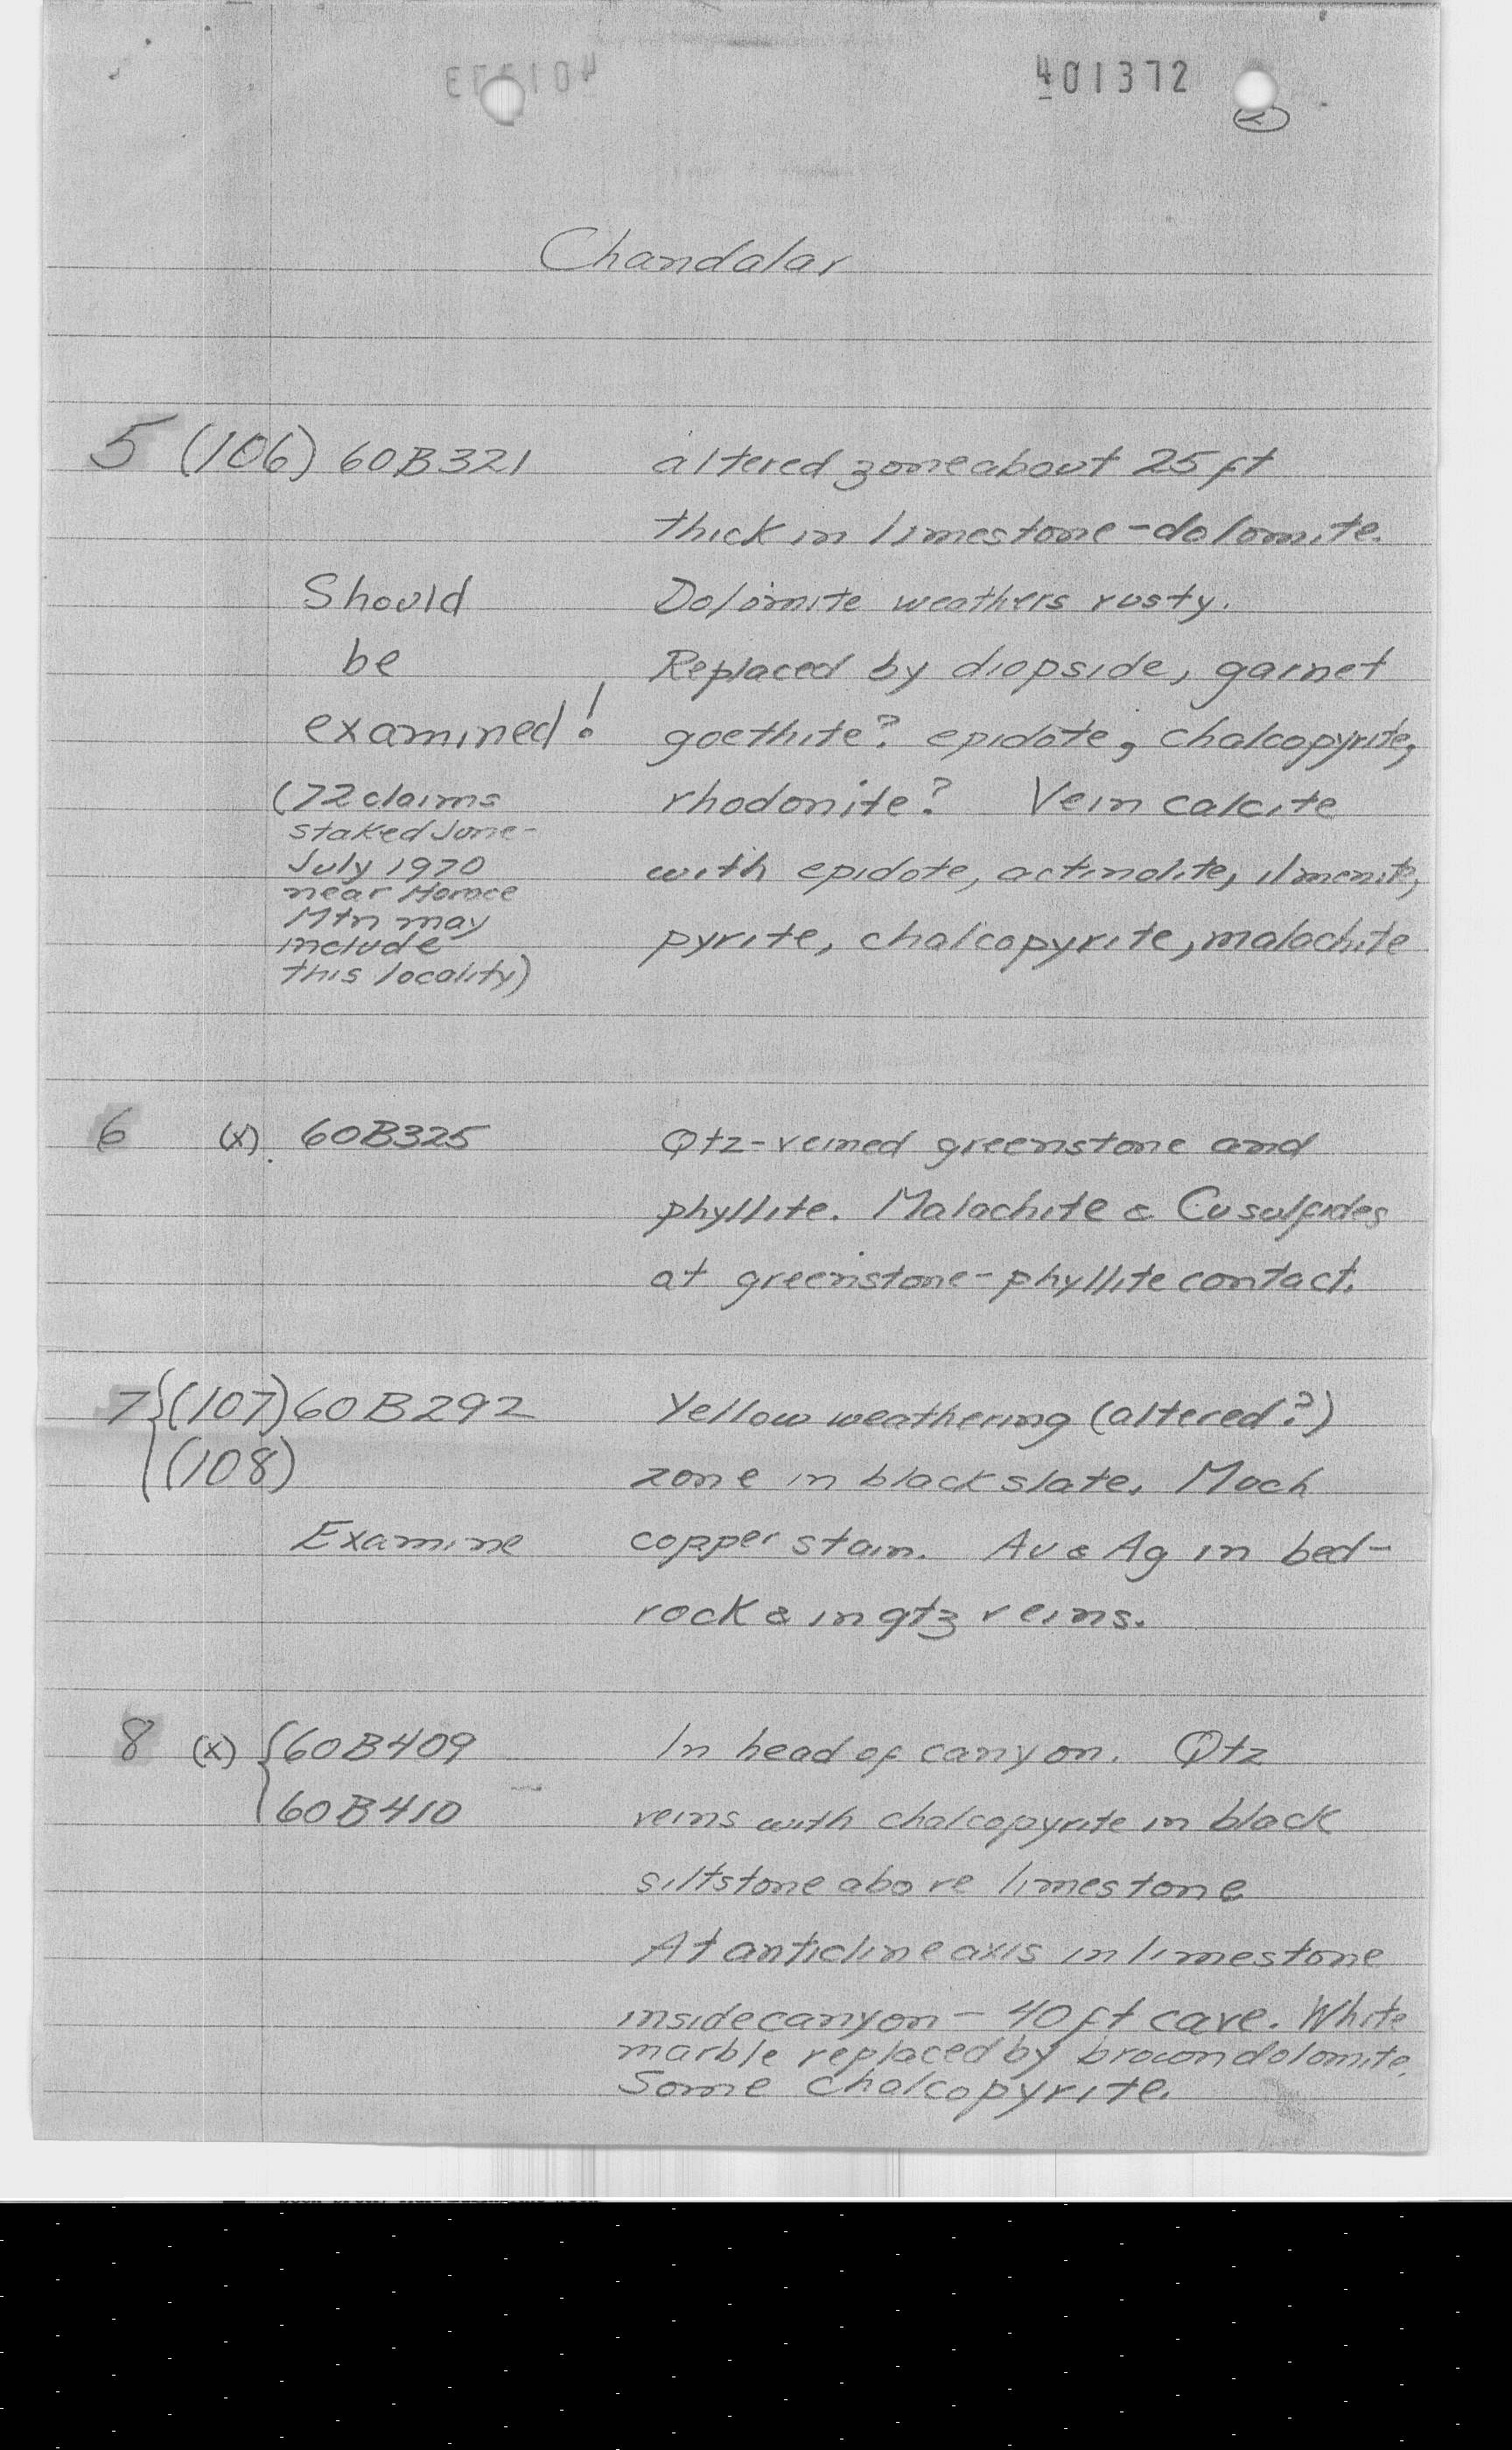 401372
2
Chandalar
5 (106) 60B321 altered zone about 25 ft
thick in limestone-dolomite.
Should Dolomite weathers rusty.
be Replaced by diopside, garnet
examined! goethite? epidote, chalcopyrite,
(72 claims rhodonite? Vein calcite
staked June-
July 1970 with epidote, actinolite, ilmenite,
near Horace
Mtn may
include pyrite, chalcopyrite, malachite
this locality)
6 (x) 60B325 Qtz-veined greenstone and
phyllite. Malachite & Cu sulfides
at greenstone-phyllite contact.
7 {(107) 60B292 Yellow weathering (altered?)
(108) zone in black slate. Much
Examine copper stain. Au & Ag in bed-
rock & in qtz veins.
8 (x) {60B409 In head of canyon. Qtz
60B410 veins with chalcopyrite in black
siltstone above limestone
At anticline axis in limestone
inside canyon - 40 ft cave. White
marble replaced by brown dolomite.
Some chalcopyrite.